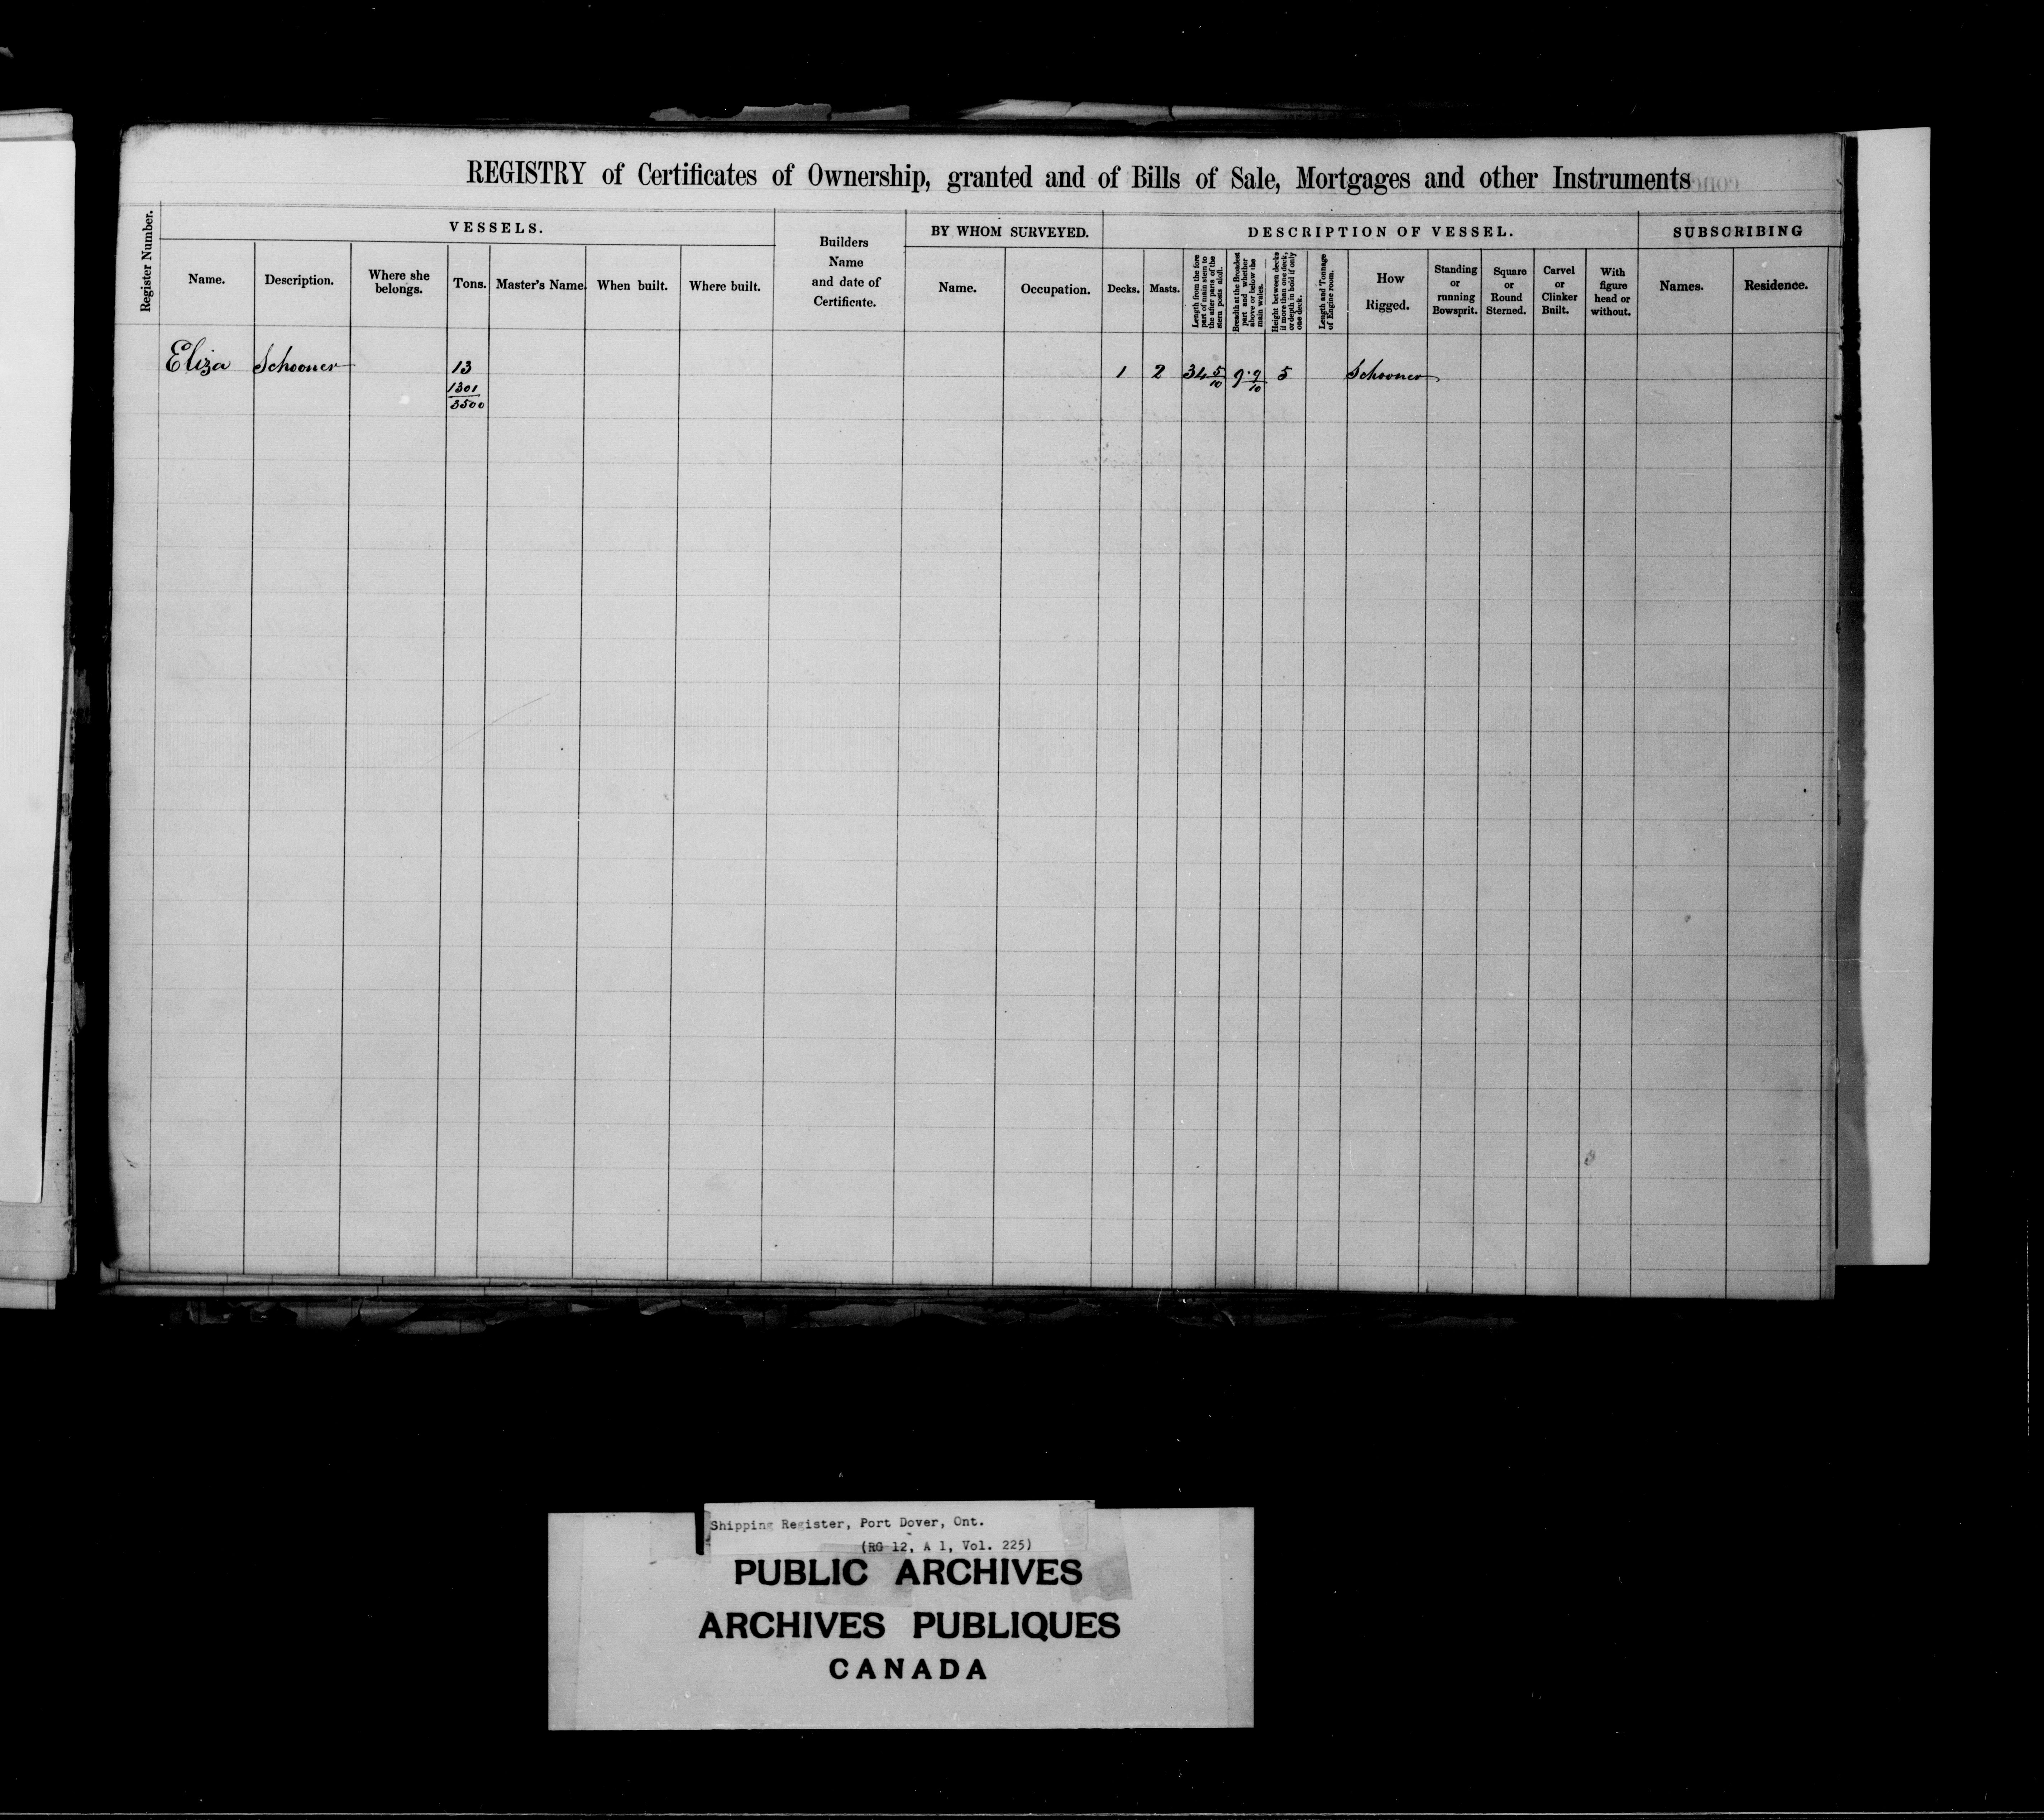 REGISTRY of Certificates of Ownership, granted and of Bills of Sale, Mortgages and other Instruments
Register Number.
VESSELS.
Name.
Description.
Where she
belongs.
Tons.
Master's Name.
When built.
Where built.
Builders
Name
and date of
Certificate.
BY WHOM SURVEYED.
Name.
Occupation.
DESCRIPTION OF VESSEL.
Decks.
Masts.
Length from the fore
part of main stem to
the after parts of the
stern posts aloft.
Breadth at the Broadest
part and whether
above or below the
main wales.
Height between decks
if more than one deck,
or depth in hold if only
one deck.
Length and Tonnage
of Engine room.
How
Rigged.
Standing
or
running
Bowsprit.
Square
or
Round
Sterned.
Carvel
or
Clinker
Built.
With
figure
head or
without.
SUBSCRIBING
Names.
Residence.
Eliza Schooner 13 1 2 34 5/10 9.9/10 5 Schooner
1301/3500
Shipping Register, Port Dover, Ont.
(RG 12, A 1, Vol. 225)
PUBLIC ARCHIVES
ARCHIVES PUBLIQUES
CANADA